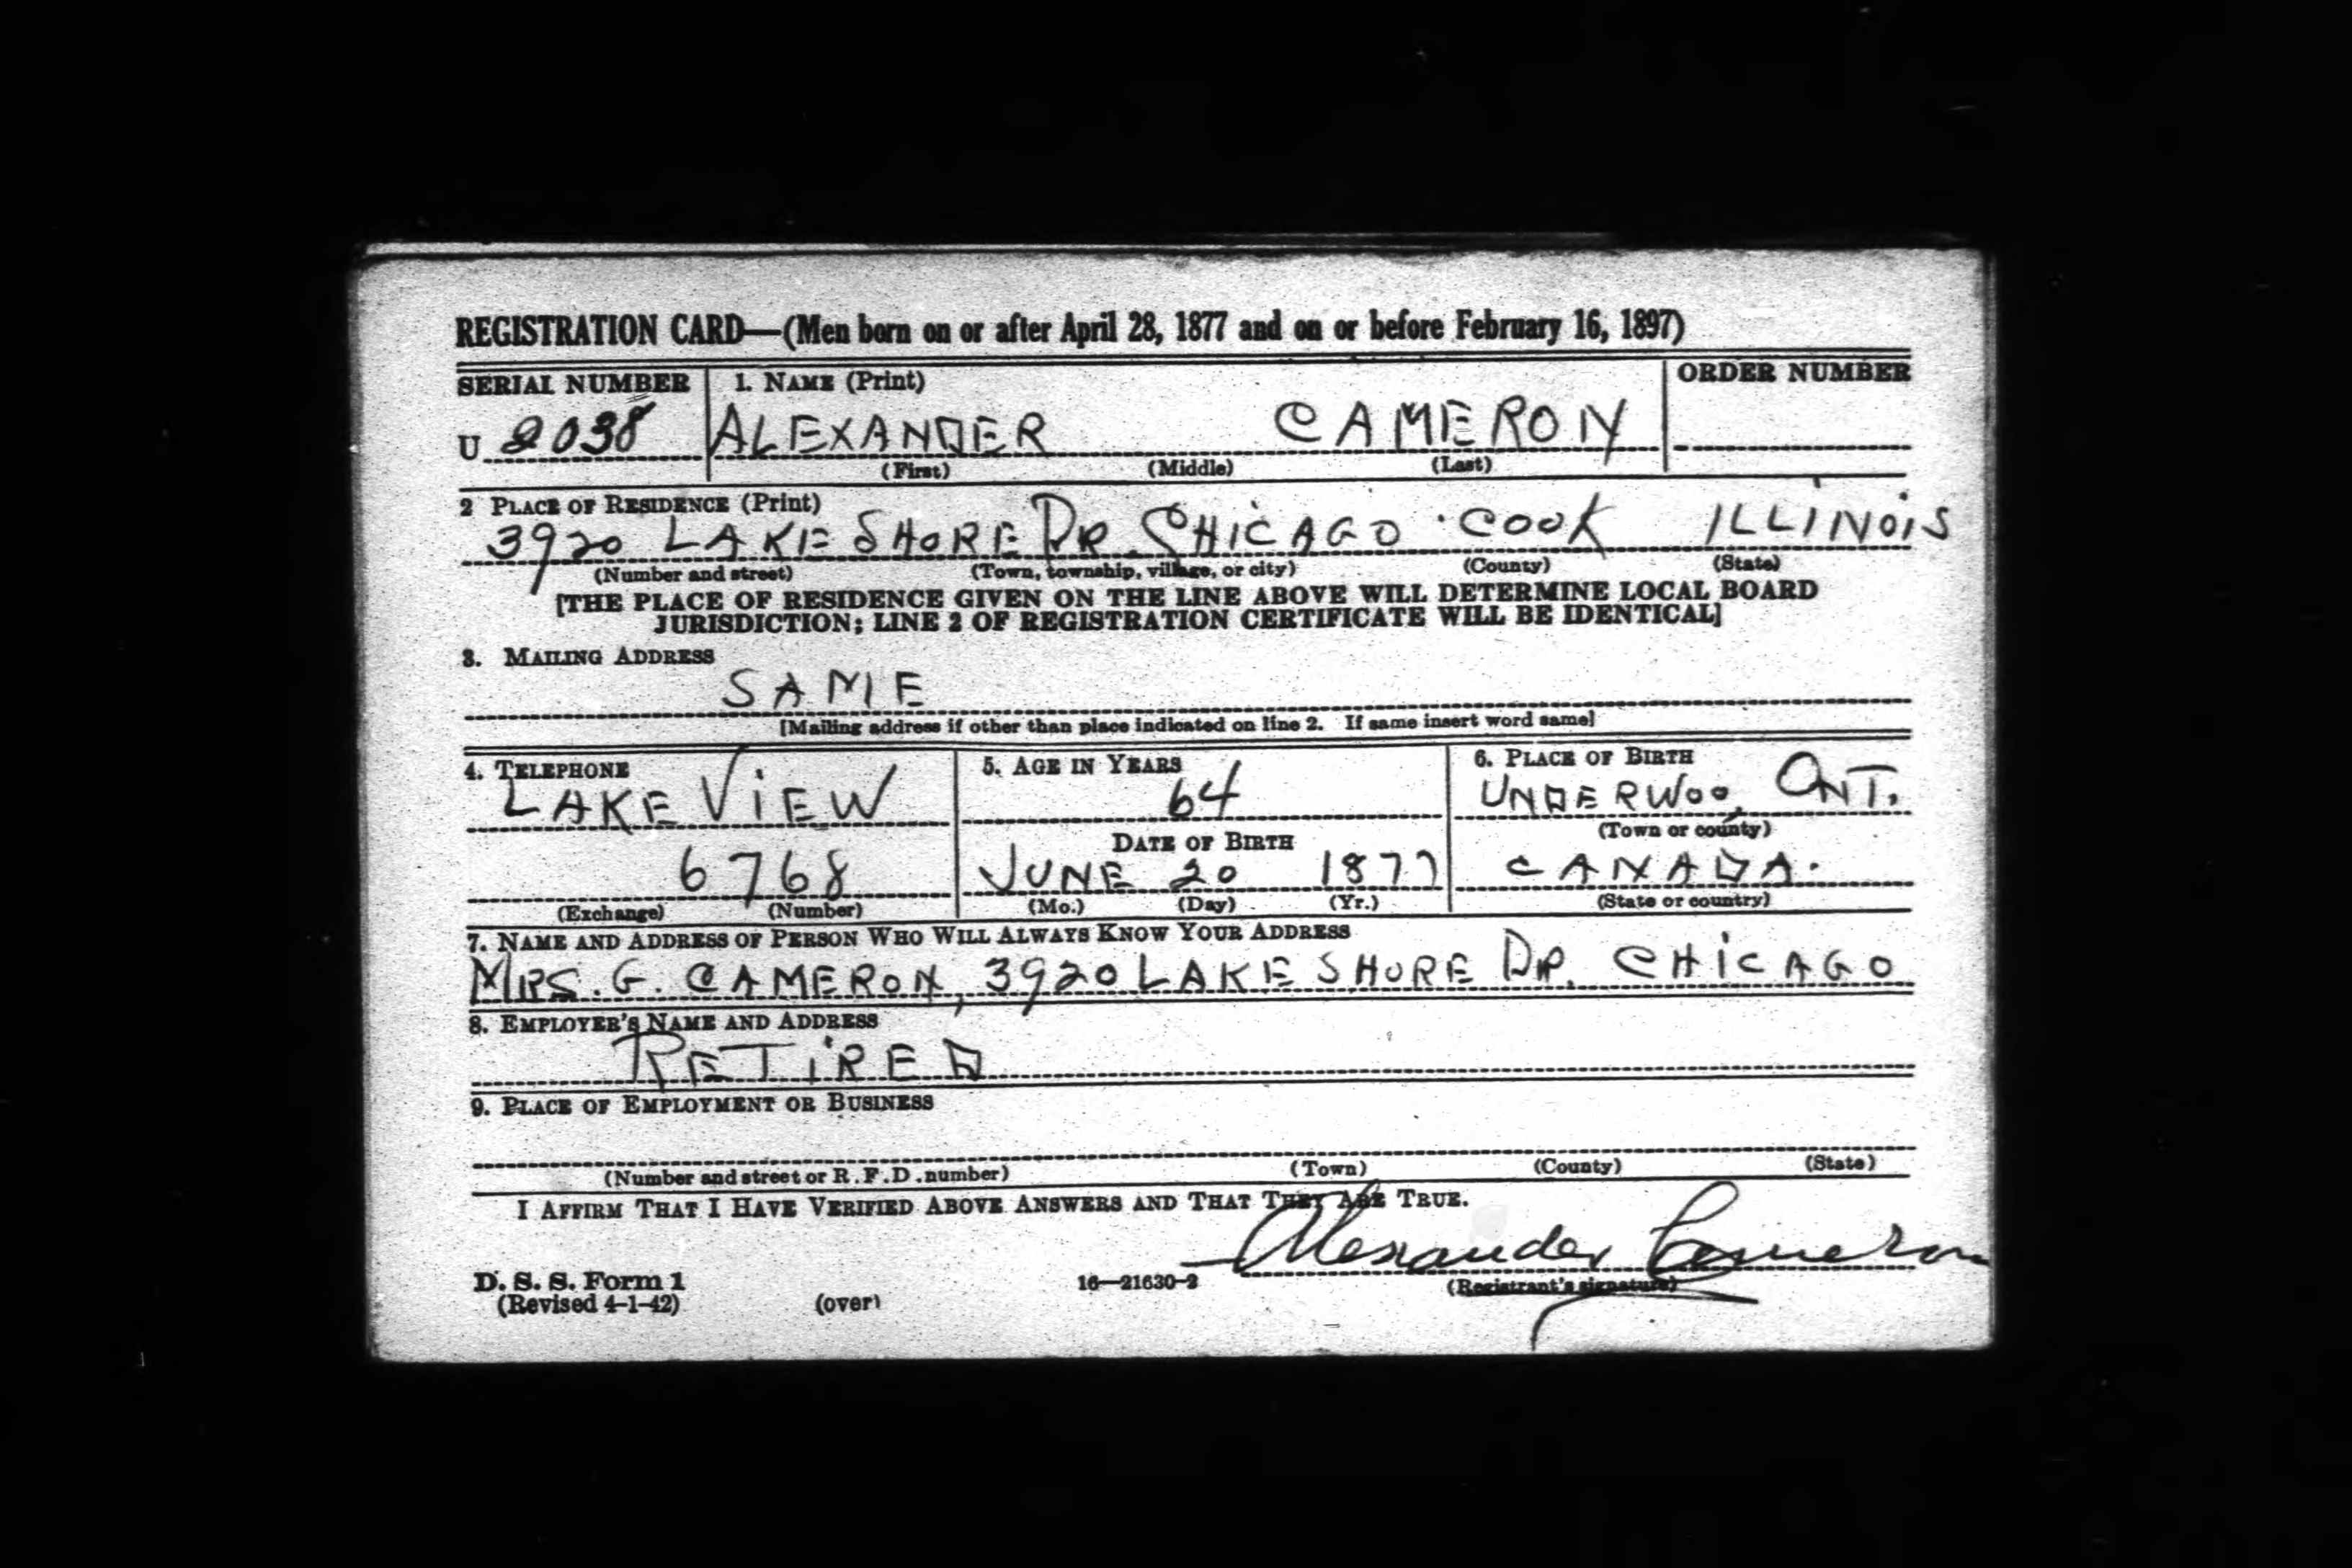 REGISTRATION CARD—(Men born on or after April 28, 1877 and on or before February 16, 1897)
SERIAL NUMBER 1. NAME (Print) ORDER NUMBER
U 2038 ALEXANDER CAMERON
(First) (Middle) (Last)
2 PLACE OF RESIDENCE (Print)
3920 LAKE SHORE DR. CHICAGO COOK ILLINOIS
(Number and street) (Town, township, village, or city) (County) (State)
[THE PLACE OF RESIDENCE GIVEN ON THE LINE ABOVE WILL DETERMINE LOCAL BOARD
JURISDICTION; LINE 2 OF REGISTRATION CERTIFICATE WILL BE IDENTICAL]
3. MAILING ADDRESS
SAME
[Mailing address if other than place indicated on line 2. If same insert word same]
4. TELEPHONE 5. AGE IN YEARS 6. PLACE OF BIRTH
LAKE VIEW 64 UNDERWOO, ONT.
DATE OF BIRTH (Town or county)
6768 JUNE 20 1877 CANADA.
(Exchange) (Number) (Mo.) (Day) (Yr.) (State or country)
7. NAME AND ADDRESS OF PERSON WHO WILL ALWAYS KNOW YOUR ADDRESS
MRS. G. CAMERON, 3920 LAKE SHORE DR. CHICAGO
8. EMPLOYER'S NAME AND ADDRESS
RETIRED
9. PLACE OF EMPLOYMENT OR BUSINESS
(Number and street or R.F.D. number) (Town) (County) (State)
I AFFIRM THAT I HAVE VERIFIED ABOVE ANSWERS AND THAT THEY ARE TRUE.
Alexander Cameron
D. S. S. Form 1 16—21630-2 (Registrant's signature)
(Revised 4-1-42) (over)